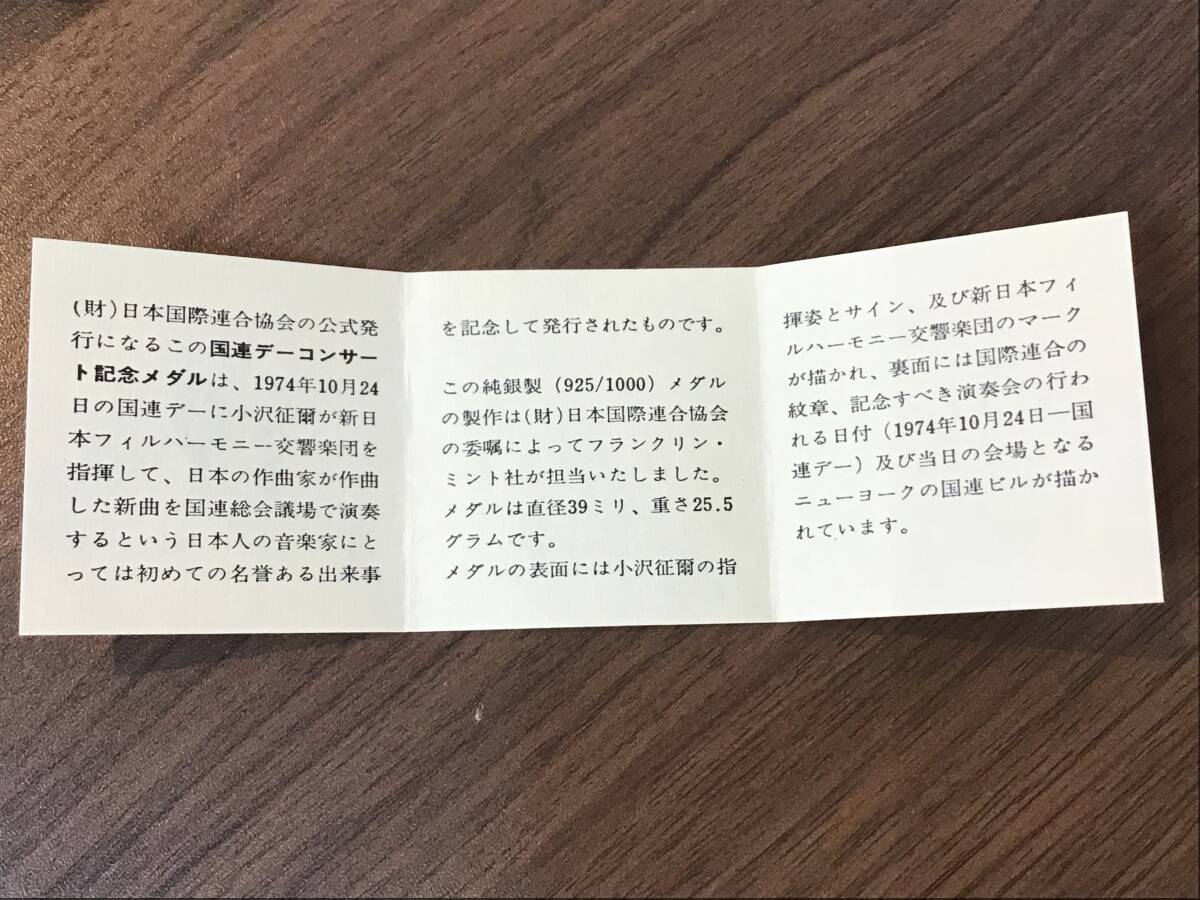 (財)日本国際連合協会の公式発
行になるこの国連デーコンサー
ト記念メダルは、1974年10月24
日の国連デーに小沢征爾が新日
本フィルハーモニー交響楽団を
指揮して、日本の作曲家が作曲
した新曲を国連総会議場で演奏
するという日本人の音楽家にと
っては初めての名誉ある出来事
を記念して発行されたものです。
この純銀製（925/1000）メダル
の製作は(財)日本国際連合協会
の委嘱によってフランクリン・
ミント社が担当いたしました。
メダルは直径39ミリ、重さ25.5
グラムです。
メダルの表面には小沢征爾の指
揮姿とサイン、及び新日本フィ
ルハーモニー交響楽団のマーク
が描かれ、裏面には国際連合の
紋章、記念すべき演奏会の行わ
れる日付（1974年10月24日―国
連デー）及び当日の会場となる
ニューヨークの国連ビルが描か
れています。